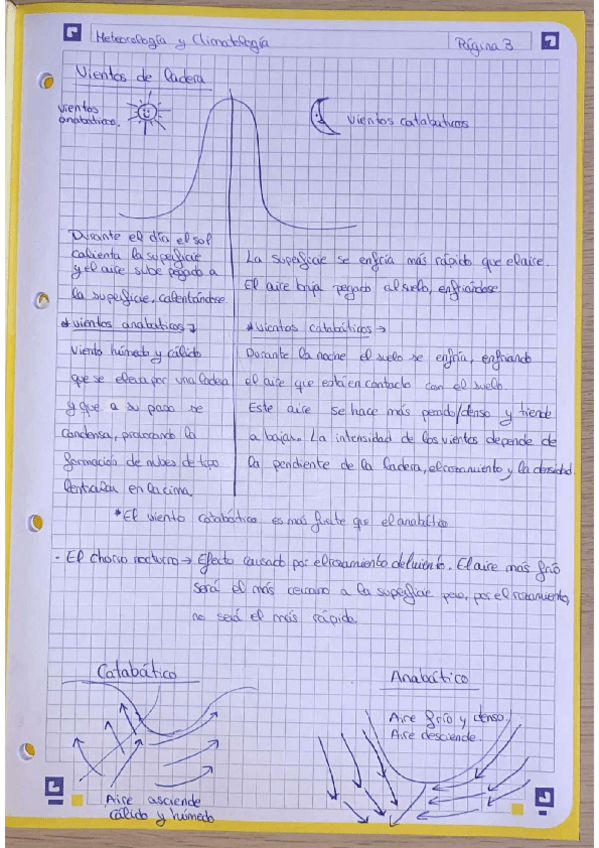 Meteorología y Climatología
Página 3
Vientos de ladera
vientos
anabáticos.
vientos catabáticos
Durante el día el sol
calienta la superficie
y el aire sube pegado a
la superficie, calentándose
La superficie se enfría más rápido que el aire.
El aire baja pegado al suelo, enfriándose.
*vientos anabáticos
viento húmedo y cálido
que se eleva por una ladera
y que a su paso se
condensa, provocando la
formación de nubes de tipo
lenticular en la cima.
*Vientos catabáticos →
Durante la noche el suelo se enfría, enfriando
el aire que está en contacto con el suelo.
Este aire se hace más pesado/denso y tiende
a bajar. La intensidad de los vientos depende de
la pendiente de la ladera, el rozamiento y la densidad.
*El viento catabático es más fuerte que el anabático
- El chorro nocturno → Efecto causado por el rozamiento del viento. El aire más frío
será el más cercano a la superficie pero, por el rozamiento,
no será el más rápido.
Catabático
Aire asciende
cálido y húmedo
Anabático
Aire frío y denso.
Aire desciende.